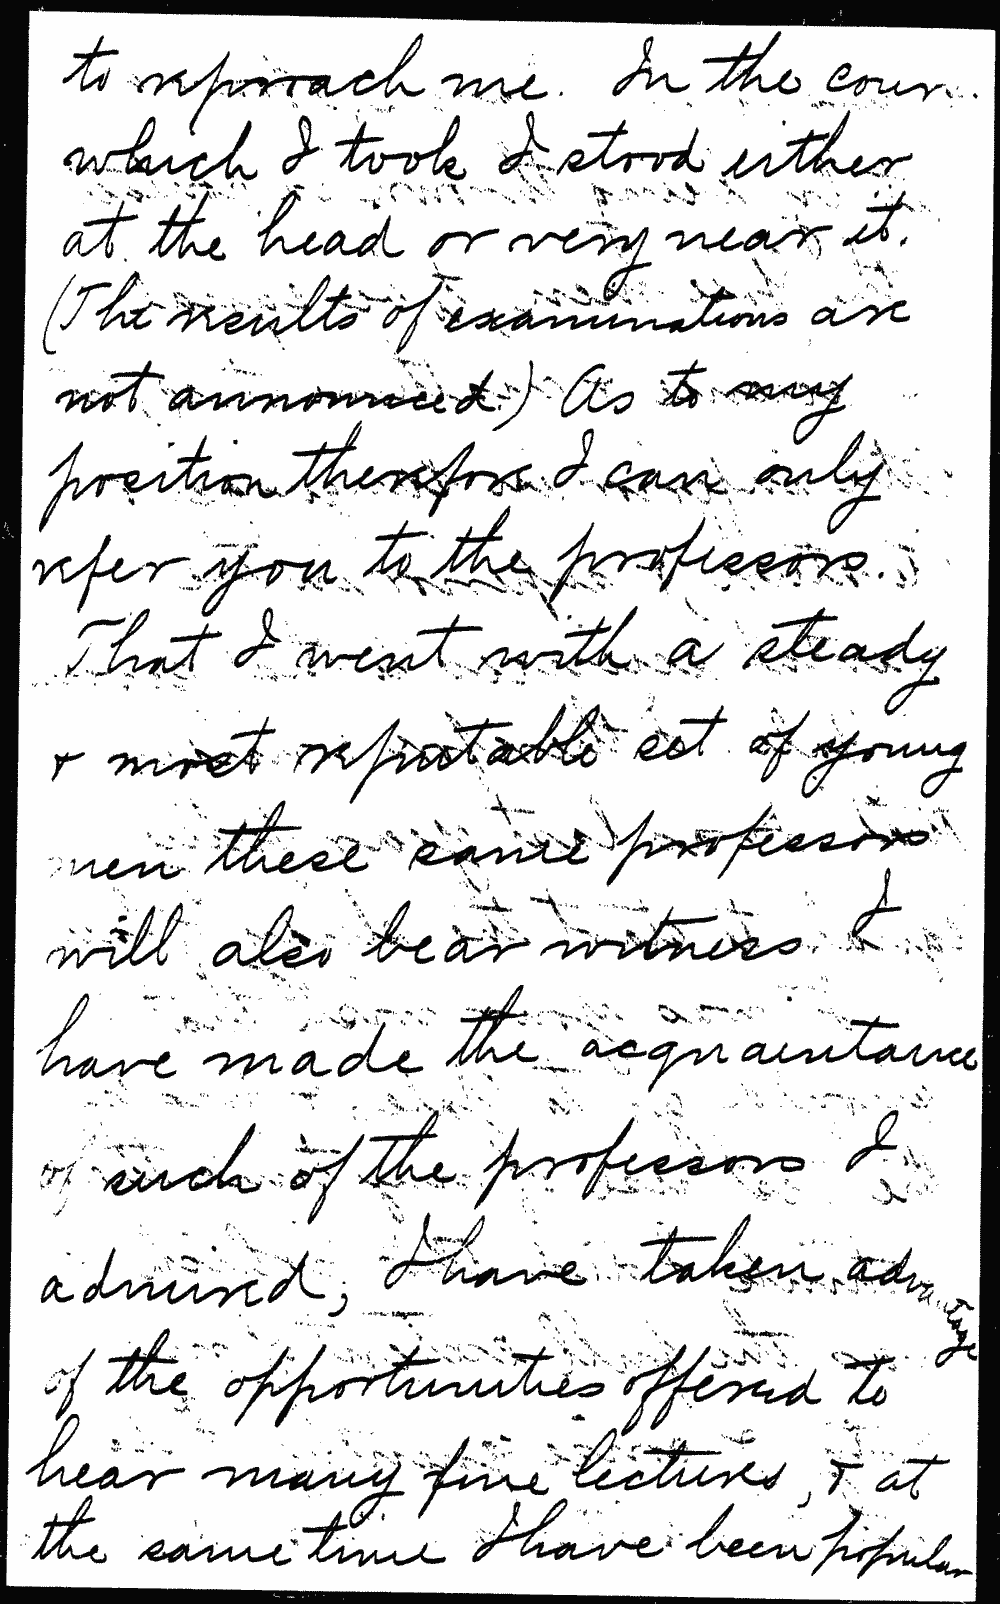 to reproach me. In the cour
which I took I stood either
at the head or very near it.
(The results of examinations are
not announced.) As to my
position therefore I can only
refer you to the professors.
That I went with a steady
& most reputable set of young
men these same professors
will also bear witness. I
have made the acquaintance
of such of the professors I
admired, I have taken advantage
of the opportunities offered to
hear many fine lectures, & at
the same time I have been popular